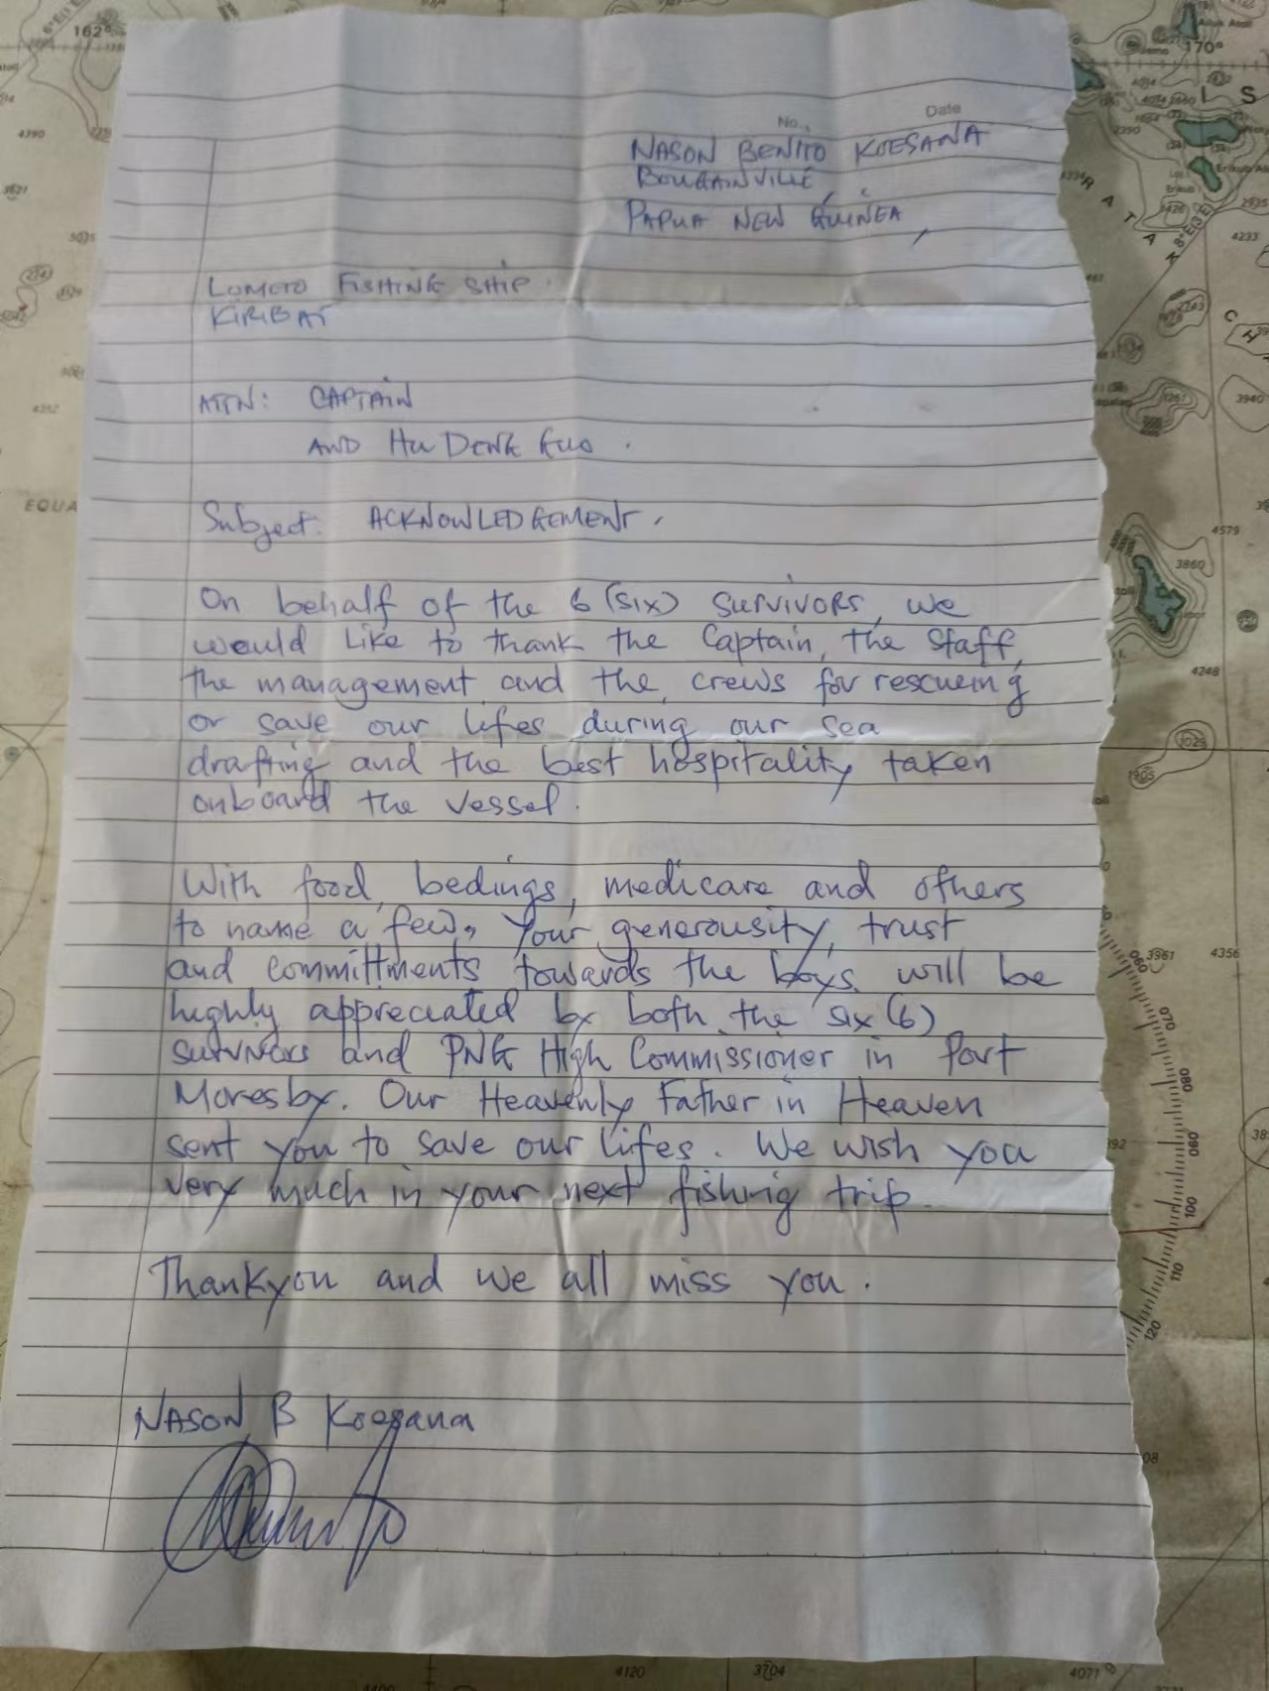 No.
Date
NASON BENITO KOESANA
BOUGAINVILLE,
PAPUA NEW GUINEA,
LOMETO FISHING SHIP.
KIRIBATI
ATTN: CAPTAIN
AND HU DENG GUO.
Subject: ACKNOWLEDGEMENT.
On behalf of the 6 (six) survivors, we
would like to thank the Captain, the staff,
the management and the crews for rescueing
or save our lifes during our sea
drafting and the best hospitality taken
onboard the vessel.
With food, bedings, medicare and others
to name a few, Your generousity, trust
and committments towards the boys will be
highly appreciated by both the six (6)
survivors and PNG High Commissioner in Port
Moresby. Our Heavenly Father in Heaven
sent you to save our lifes. We wish you
very much in your next fishing trip.
Thankyou and we all miss you.
NASON B Koesana
162°
170°
EQUA
RATAK
CH
4390
5035
4352
4233
3940
4579
3860
4248
3961
4356
060
070
080
090
100
110
120
4120
3704
4071